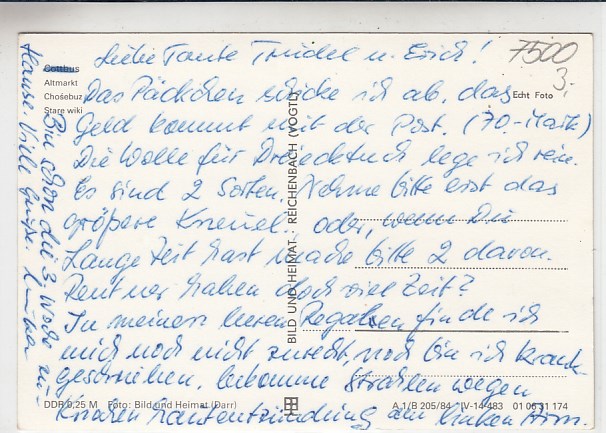 Liebe Tante Trudel u. Erich!
7500
3,-
Cottbus
Altmarkt
Chośebuz
Stare wiki
Echt Foto
Das Päckchen schicke ich ab, das
Geld kommt mit der Post. (70,- Mark)
Die Wolle für Dreiecktuch lege ich rein.
Es sind 2 Sorten. Nehme bitte erst das
größere Kneuel.. oder, wenn Du
Lange Zeit hast mache bitte 2 davon.
Rentner haben doch viel Zeit?
In meinen leeren Regalen finde ich
mich noch nicht zurecht, noch bin ich krank-
geschrieben, bekomme Strahlen wegen
Knochenhautentzündung am linken Arm.
Bin schon die 3. Woche zu
Hause. Viele Grüße
BILD UND HEIMAT REICHENBACH (VOGTL)
DDR 0,25 M Foto: Bild und Heimat (Darr)
A.1/B 205/84 IV-14-483 01 06 31 174